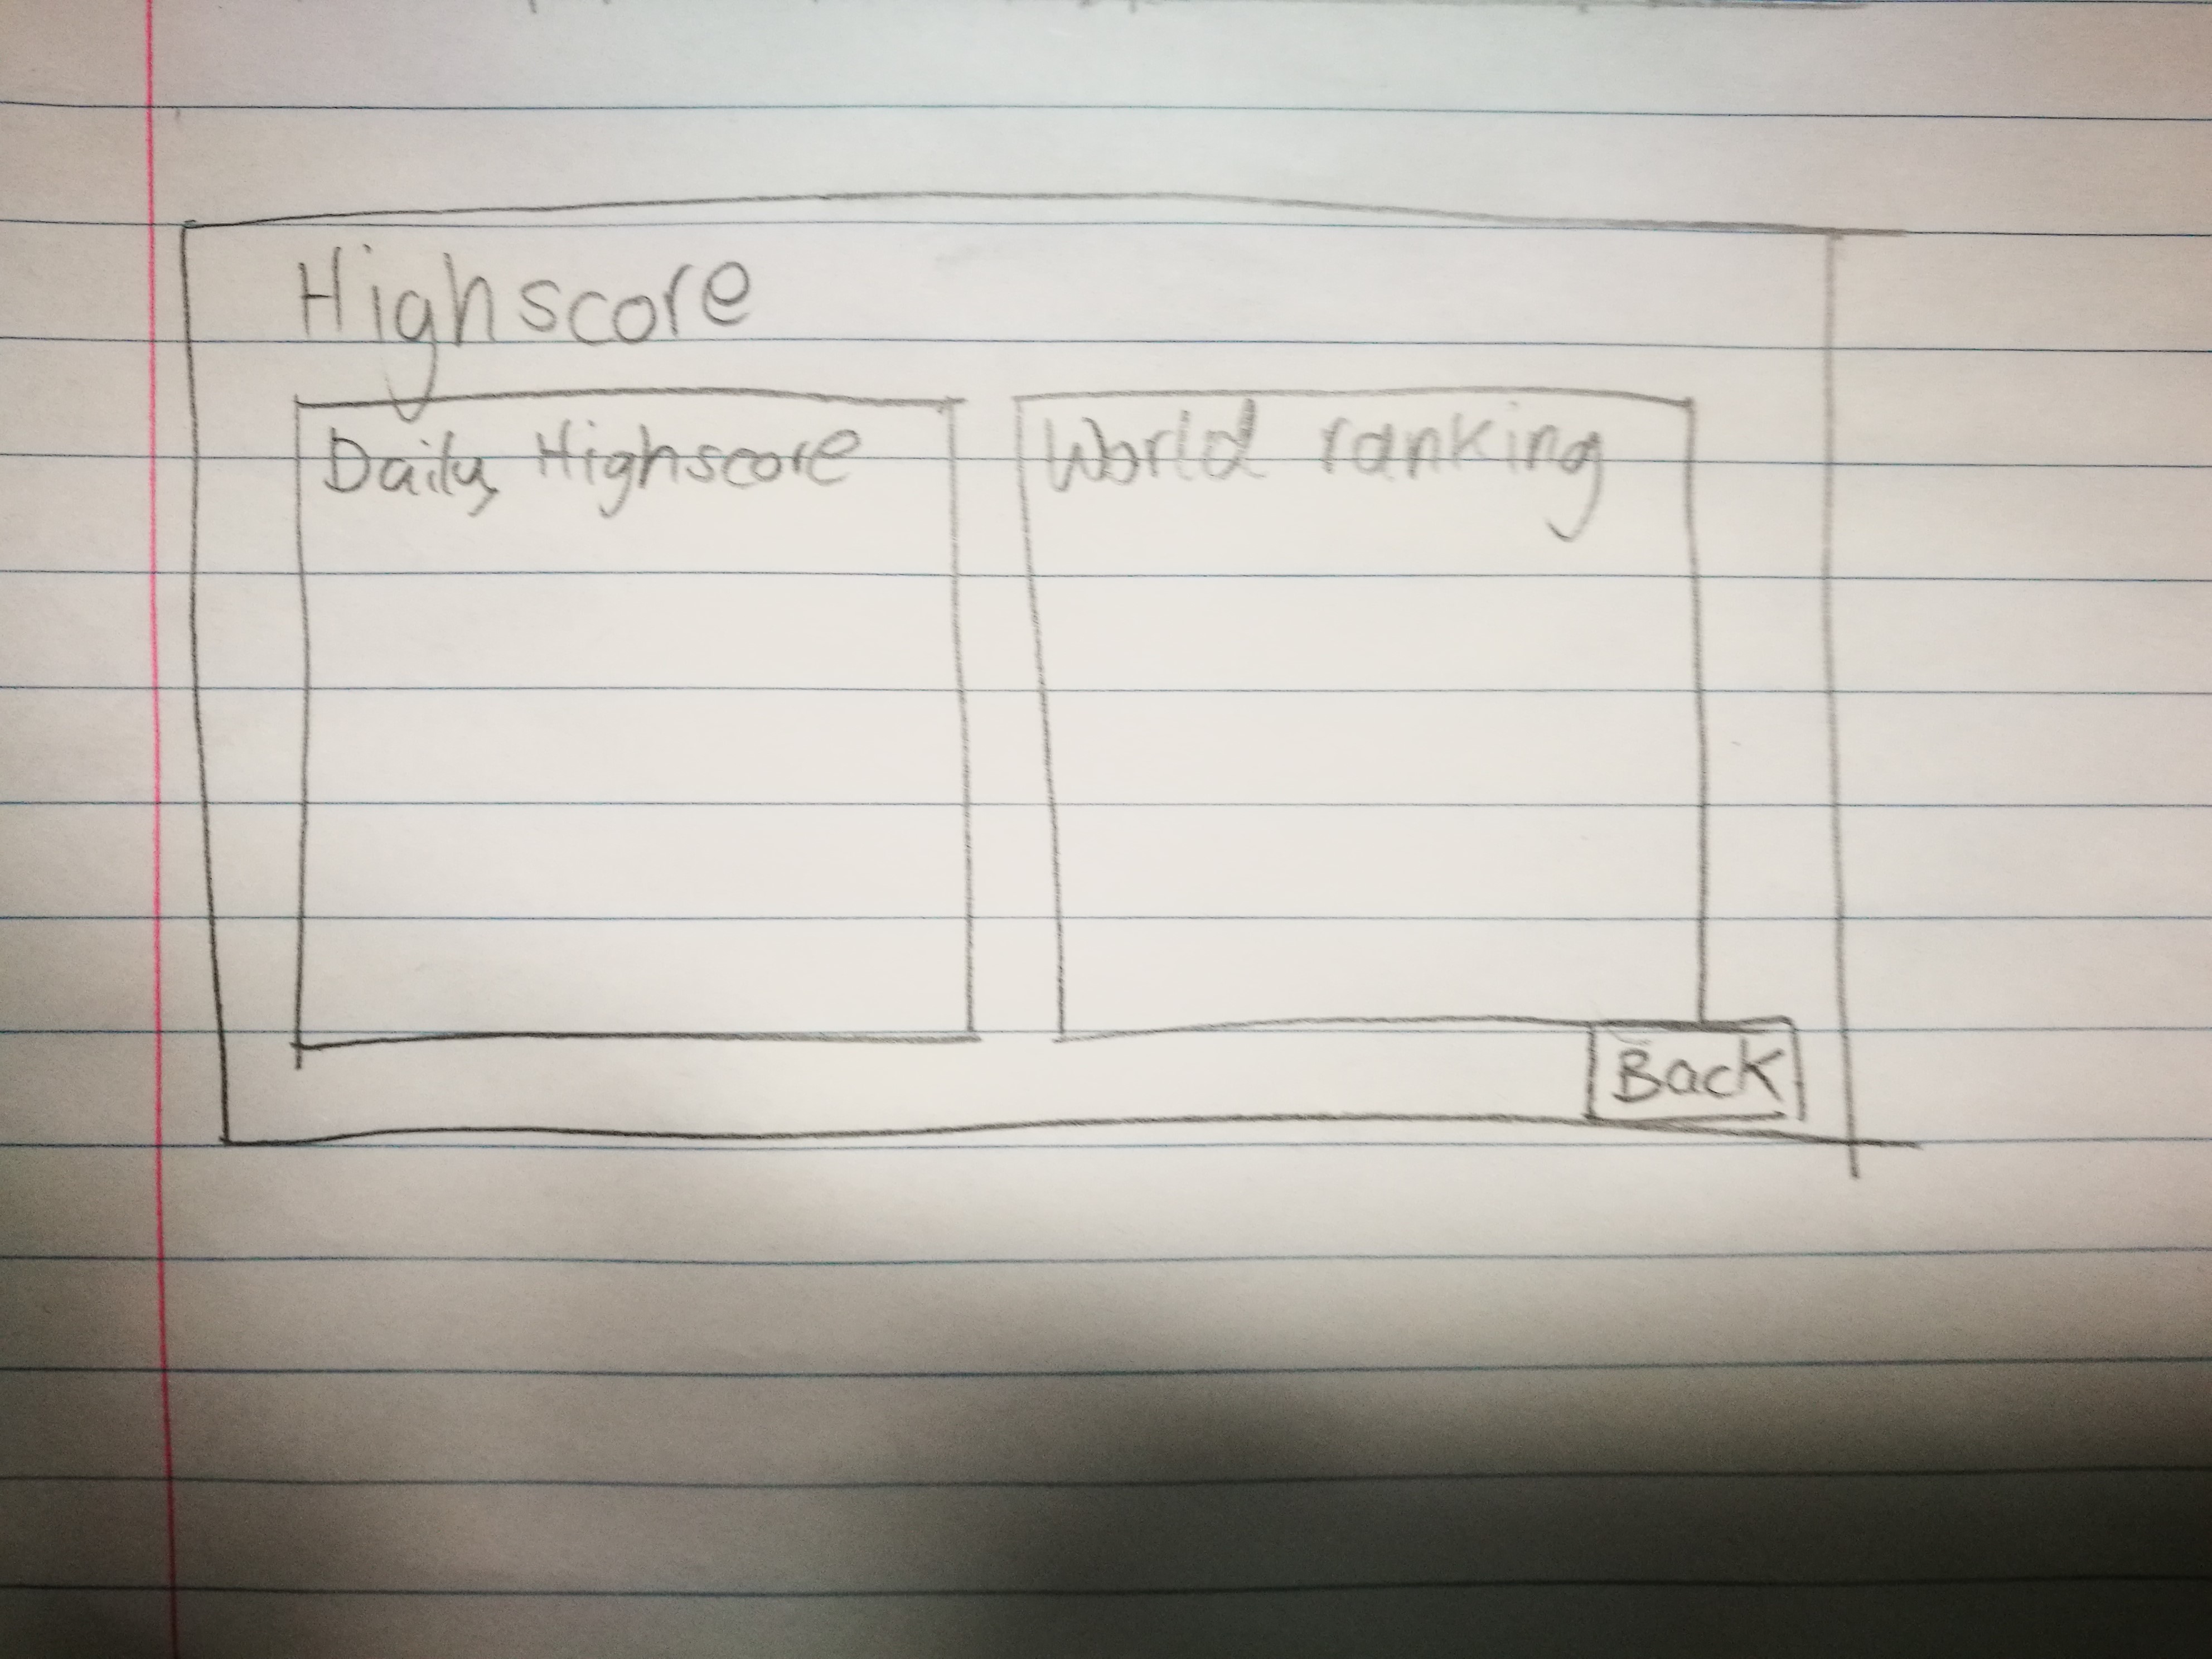 Highscore
Daily Highscore
World ranking
Back